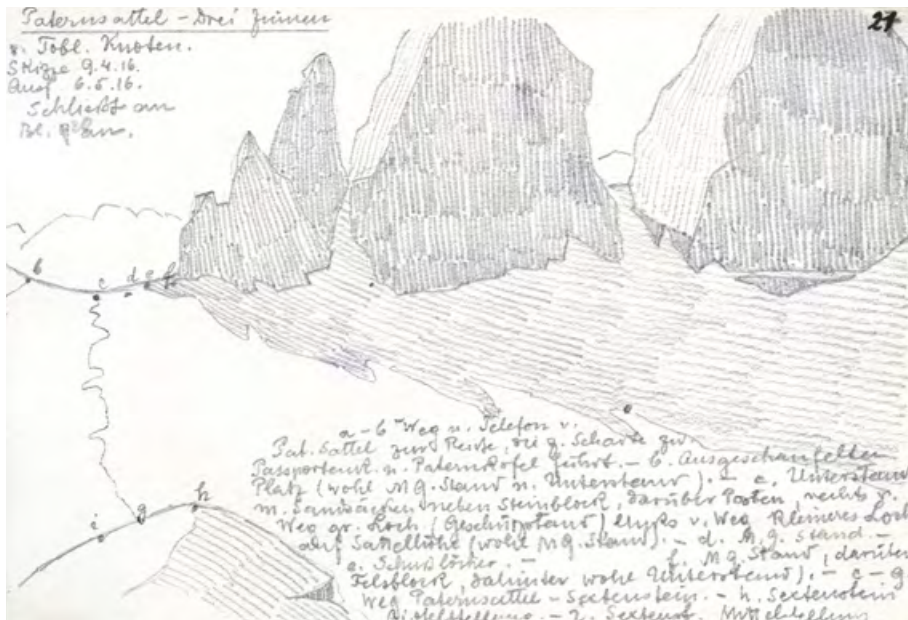 Paternsattel – Drei Zinnen
21
v. Tobl. Knoten.
Skizze 9.4.16.
Ausf 6.5.16.
Schließt an
Bl.
b
c
d
e
f
a – b Weg u. Telefon v.
Pat. Sattel zur Reihe, die z. Scharte zw.
Passportenk. u. Paternkofel führt. – b. Ausgeschaufelter
Platz (wohl M.G. Stand u. Unterstand). – c. Unterstand
m. Sandsäcken neben Steinblock, darüber Posten, rechts v.
Weg gr. Loch (Geschützstand) links v. Weg kleineres Loch
auf Sattelhöhe (wohl M.G. Stand). – d. M.G. Stand. –
e. Schußlöcher. – f. M.G. Stand, darüber
Felsblock, dahinter wohl Unterstand). – c – g
Weg Paternsattel – Sextenstein. – h. Sextenstein
– i. Sextenst.
i
g
h